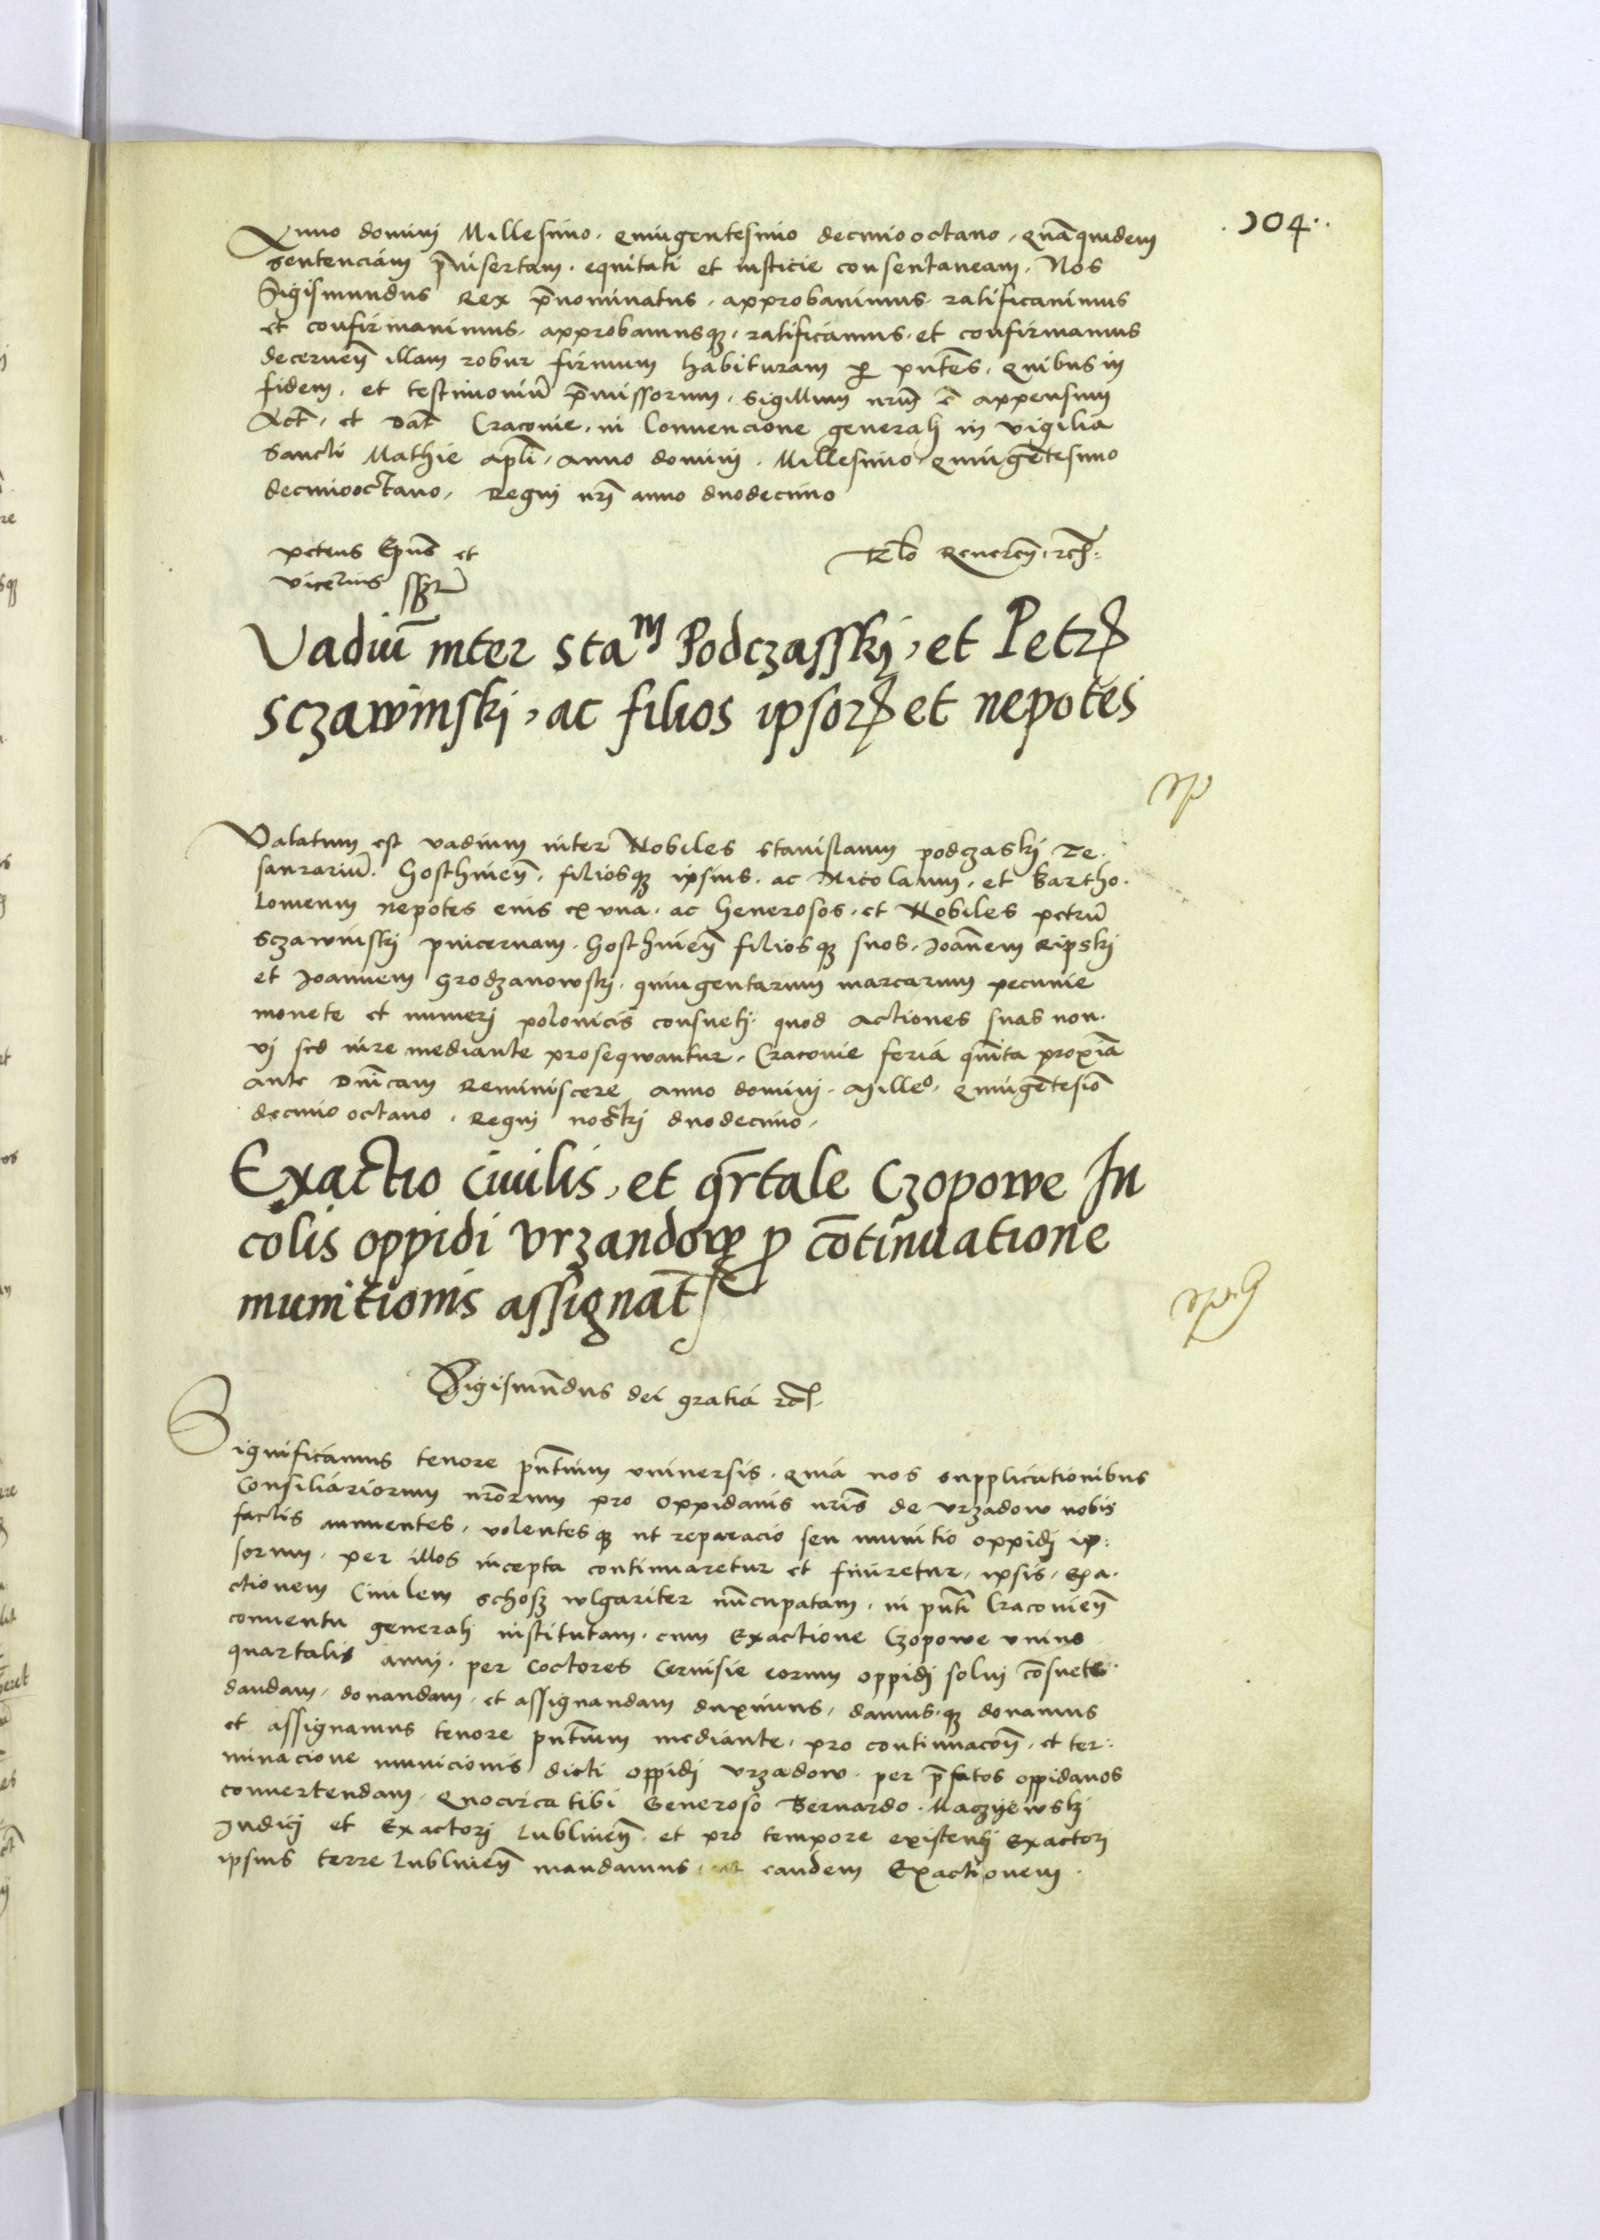 104
Anno domini Millesimo quingentesimo decimooctauo, quāquidem
sentenciam p̄insertam equitati et iusticie consentaneam, Nos
Sigismundus Rex p̄nominatus approbauimus ratificauimus
et confirmauimus, approbamusqꝫ ratificamus et confirmamus
decerneñ illam robur firmum habituram ꝑ pñtes, quibus in
fidem et testimoniū p̄missorum, sigillum nrm̃ ẽ appensum
Act̃ et Dat̃ Cracouie in Conuencione generalj in vigilia
Sancti Mathie apl̃i, anno dominj Millesimo quingētesimo
decimooctauo, Regnj nrj̃ anno duodecimo
petrus Ep̃us et
vicecñrius sszt
Rlo Reuereñ rc̃
Vadiū inter Staᵐ Podczasskj, et Petrꝝ
Sczawinskj, ac filios ipsorꝝ et nepotes
Valatum est vadium inter Nobiles Stanislaum podczaskj Te-
saurariū Gosthinieñ, filiosqꝫ ipsius ac Nicolaum, et Bartho-
lomeum nepotes eius ex vna, ac Generosos et Nobiles petrū
Sczawinskj pincernam Gosthinieñ filiosqꝫ suos, Joañem Ripskj
et Joannem Grodzanowskj, quingentarum marcarum pecunie
monete et numerj polonicis consuetj, quod actiones suas non
vj sed iure mediante proseqwantur, Cracouie feria quīta proxīa
ante Dñicam Reminiscere anno dominj Milleᵒ quingētesiō
decimo octauo, Regnj nostrj duodecimo,
Exactio Ciuilis, et qr̄tale Czopowe In
colis oppidi Vrzandow ꝓ cōtinuatione
munitionis assignat̃
Sigismūdus dei gratia rc̃
Significamus tenore pñtium vniuersis, quia nos supplicationibus
Consiliariorum nrõrum pro oppidanis nris̃ de vrzadow nobis
factis annuentes, volentesqꝫ ut reparacio seu munitio oppidj ip-
sorum, per illos incepta continuaretur et finiretur, ipsis, Exa-
ctionem Ciuilem schosz wlgariter nūcupatam, in pñti Cracouieñ
conuentu generalj institutam, cum Exactione Czopowe vnius
quartalis annj, per Coctores Ceruisie eorum oppidj solui cōsuete
dandam, donandam, et assignandam duximus, damusqꝫ donamus
et assignamus tenore pñtium mediante, pro continuacoñ, et ter-
minacione municionis dicti oppidj vrzadow, per p̄fatos oppidanos
conuertendam, Quocirca tibi Generoso Bernardo Maczyewskj
Judicj et Exactorj Lublineñ et pro tempore existentj Exactorj
ipsius terre Lublineñ mandamus, ut eandem Exactionem